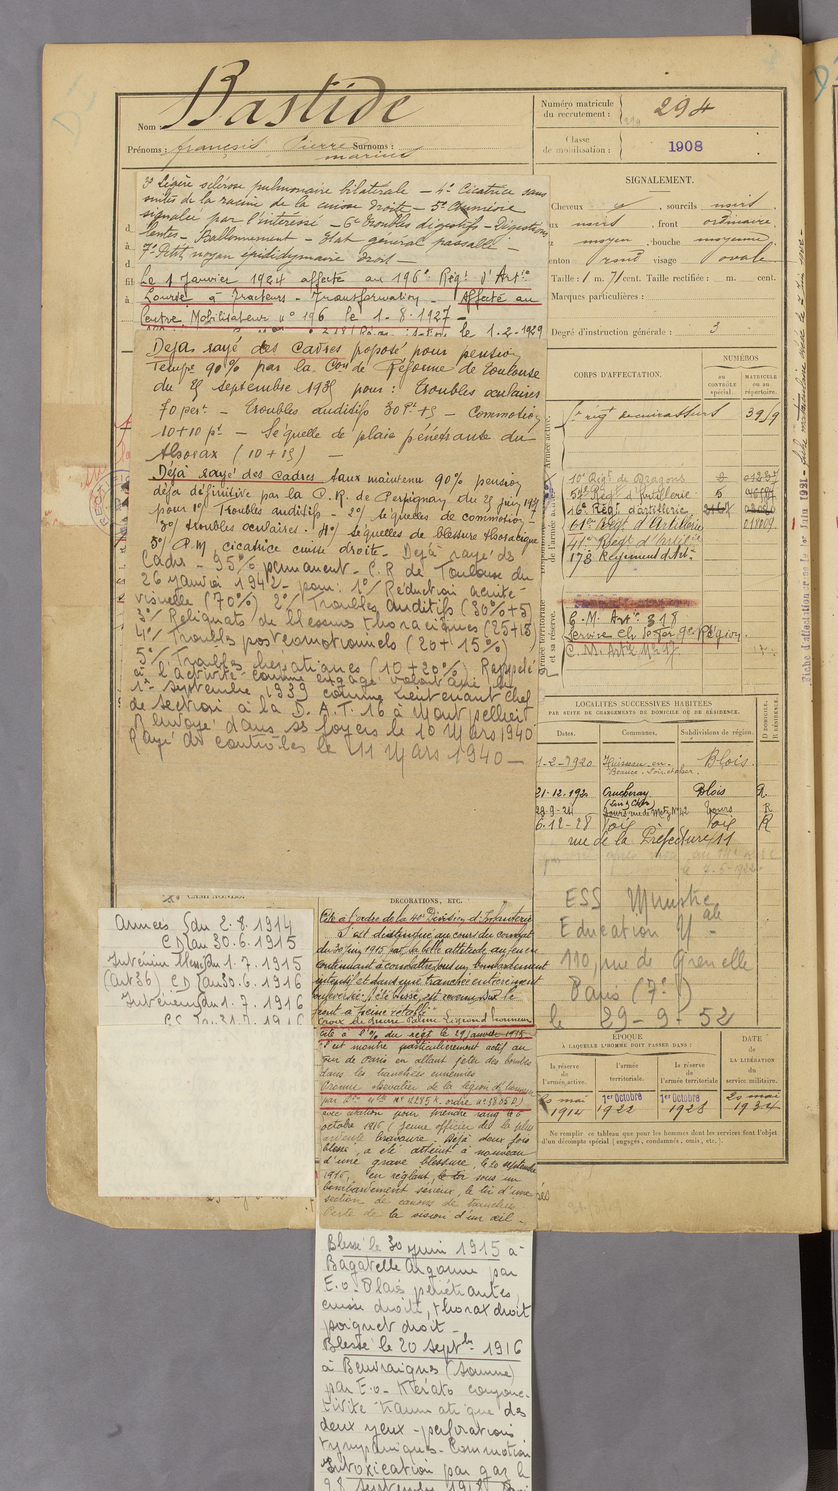 Nom : Bastide
Prénoms : françois Pierre Surnoms :
marius
Numéro matricule du recrutement : 294
Classe de mobilisation : 1908
3° légère sclérose pulmonaire bilatérale – 4° Cicatrice sans
de la racine de la cuisse droite – 5°
signalée par l'intéressé – 6° troubles digestifs – Digestions
lentes – Ballonnement – Etat général passable –
7° Petit noyau épididymaire droit –
Le 1 Janvier 1924 affecté au 196° Régt d'Artie
Lourde à Tracteurs – Transformation – Affecté au
Centre Mobilisateur n° 196 le 1-8-1927 –
le 1-2-1929
Déjà rayé des cadres proposé pour pension
Tempre 90% par la Con de Réforme de Toulouse
du 25 septembre 1935 pour : troubles oculaires
70 per – troubles auditifs 30 Pt +5 – Commotion
10+10 pt – Séquelle de plaie pénétrante du
thorax (10+15) –
Déjà rayé des cadres taux maintenu 90% pension
déjà définitive par la C.R. de Perpignan du 25 juin
pour 1° Troubles auditifs – 2°/ séquelles de commotion –
3°/ troubles oculaires – 4°/ séquelles de blessure thoracique
5°/ P.M. cicatrice cuisse droite – Déjà rayé des
Cadres – 95% permanent – C.R de Toulouse du
26 janvier 1942 – pour : 1°/ Réduction acuité
visuelle (70%) 2°/ Troubles auditifs (30%+5)
3°/ Reliquats de blessures thoraciques (25+15)
4°/ Troubles postcomotionnels (20+15%)
5°/ Troubles hépatiques (10+20%) Rappelé
à l'activité comme engagé volontaire le
1er septembre 1939 comme lieutenant chef
de section à la D.A.T. 16 à Montpellier
Renvoyé dans ses foyers le 10 Mars 1940
Rayé des contrôles le 11 Mars 1940 –
SIGNALEMENT.
Cheveux , sourcils noirs
yeux noirs , front ordinaire
nez moyen , bouche moyenne
menton rond visage ovale
Taille : 1 m. 71 cent. Taille rectifiée : m. cent.
Marques particulières :
Degré d'instruction générale : 3
CORPS D'AFFECTATION.
NUMÉROS
au CONTRÔLE spécial.
MATRICULE ou au répertoire.
Armée active.
régt de cuirassiers 3959
10e Régt de Dragons
54e Régt d'Artillerie 5
16e Régt d'artillerie
61e Régt d'Artillerie 01809
41e Régt d'Artillerie
173 Régiment d'Art.
C.M. Artie 318
Service Ch. de fer 9e Région
Armée territoriale et sa réserve.
LOCALITÉS SUCCESSIVES HABITÉES
PAR SUITE DE CHANGEMENTS DE DOMICILE OU DE RÉSIDENCE.
Dates. Communes. Subdivisions de région. D DOMICILE. R RÉSIDENCE.
1-2-1920 Huisseau-en-Beauce, Loir et cher Blois
21-12-192 Crucheray Blois R
(Loir & Cher)
28-9-24 Tours rue de Metz N° 42 Tours R
6-12-28 Foix Foix R
rue de la Préfecture 11
ESS Ministre
Education Nale –
110, rue de Grenelle
Paris (7e)
le 29-9-52
ÉPOQUE
À LAQUELLE L'HOMME DOIT PASSER DANS :
la réserve de l'armée active. l'armée territoriale. la réserve de l'armée territoriale
DATE de LA LIBÉRATION du service militaire.
20 mai 1914 1er Octobre 1922 1er Octobre 1928 20 mai 1934
Ne remplir ce tableau que pour les hommes dont les services font l'objet
d'un décompte spécial (engagés, condamnés, omis, etc.).
CAMPAGNES.
Armées { du 2.8.1914
CD { au 30.6.1915
Intérieur blessé { du 1.7.1915
(Art 36) CD { au 30.6.1916
Intérieur { du 1.7.1916
CS { au 31.7.1916
DÉCORATIONS, ETC.
Cité à l'ordre de la 40e Division d'Infanterie
S'est distingué au cours du combat
du 30 juin 1915 par sa belle attitude au feu en
continuant à combattre sous un bombardement
intensif et dans une tranchée entièrement
bouleversée. A été blessé, est revenu sur le
front à peine rétabli.
Croix de Guerre Palme Légion d'honneur
Cité à l'O/ du régt le 29 janvier 1915
S'est montré particulièrement actif au
four de Paris en allant jeter des bombes
dans les tranchées ennemies
Promu chevalier de la légion d'honneur
avec citation pour prendre rang le
octobre 1916 (Jeune officier de la plus
ardente bravoure. Déjà deux fois
blessé, a été atteint à nouveau
d'une grave blessure, le 20 septembre
1916, en réglant, sous un
bombardement sérieux, le tir d'une
section de canons de tranchée
Perte de la vision d'un œil –
Blessé le 30 juin 1915 à
Bagatelle Argonne par
E.O. Plaies pénétrantes,
cuisse droite, thorax droit
poignet droit –
Blessé le 20 Septbre 1916
à Beuvraignes (Somme)
par E.O. – Kérato conjonc-
tivite traumatique des
deux yeux – perforations
tympaniques – Commotion
Intoxication par gaz le
28 septembre 1918